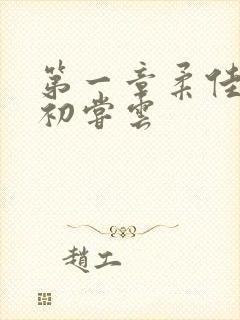 第一章柔佳
初尝云
趙工